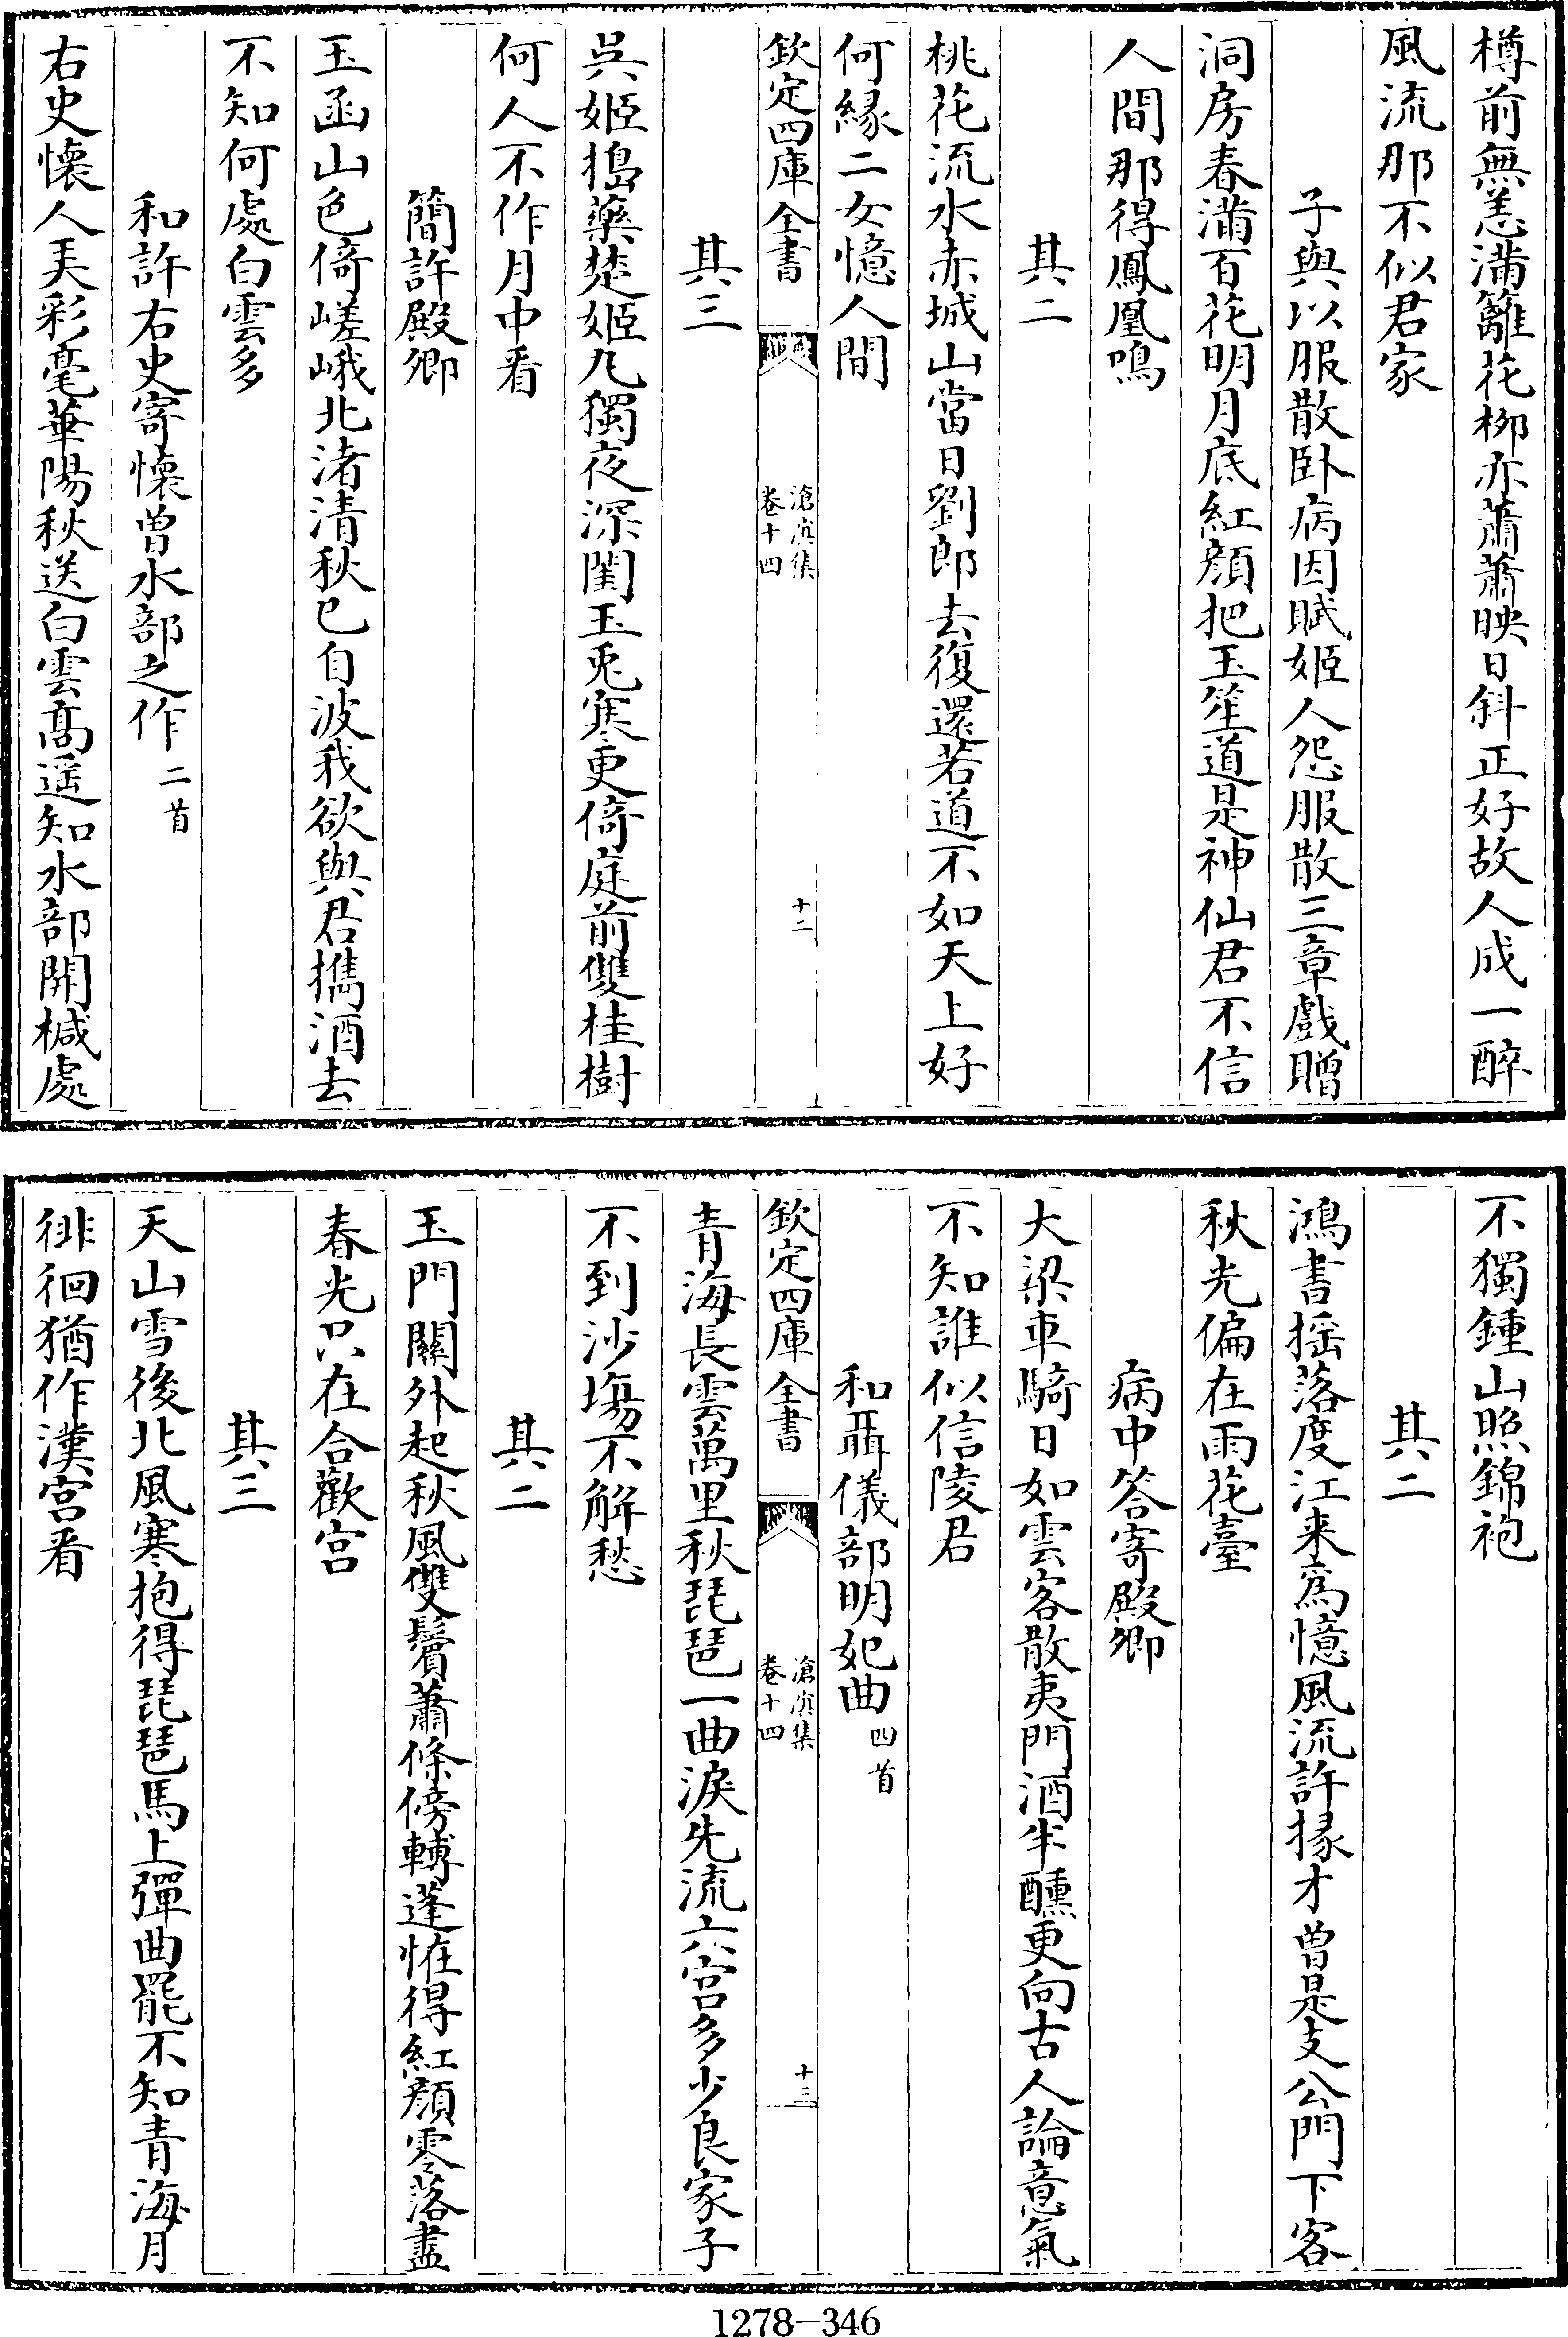 樽前無恙滿籬花柳亦蕭蕭映日斜正好故人成一醉
風流那不似君家
子與以服散卧病因賦姬人怨服散三章戲贈
洞房春滿百花明月底紅顔把玉笙道是神仙君不信
人間那得鳳凰鳴
其二
桃花流水赤城山當日劉郎去復還若道不如天上好
何緣二女憶人間
欽定四庫全書
滄溟集
卷十四
十二
其三
吳姬搗藥楚姬丸獨夜深閨玉兎寒更倚庭前雙桂樹
何人不作月中看
簡許殿卿
玉函山色倚嵯峨北渚清秋已自波我欲與君擕酒去
不知何處白雲多
和許右史寄懐曽水部之作二首
右史懐人美彩毫華陽秋送白雲髙遥知水部開椷處
不獨鍾山照錦袍
其二
鴻書揺落度江来為憶風流許掾才曽是支公門下客
秋光偏在雨花臺
病中答寄殿卿
大梁車騎日如雲客散夷門酒半醺更向古人論意氣
不知誰似信陵君
和聶儀部明妃曲四首
欽定四庫全書
滄溟集
卷十四
十三
青海長雲萬里秋琵琶一曲淚先流六宫多少良家子
不到沙塲不解愁
其二
玉門關外起秋風雙鬢蕭條傍轉蓬恠得紅顔零落盡
春光只在合歡宫
其三
天山雪後北風寒抱得琵琶馬上彈曲罷不知青海月
徘徊猶作漢宫看
1278-346